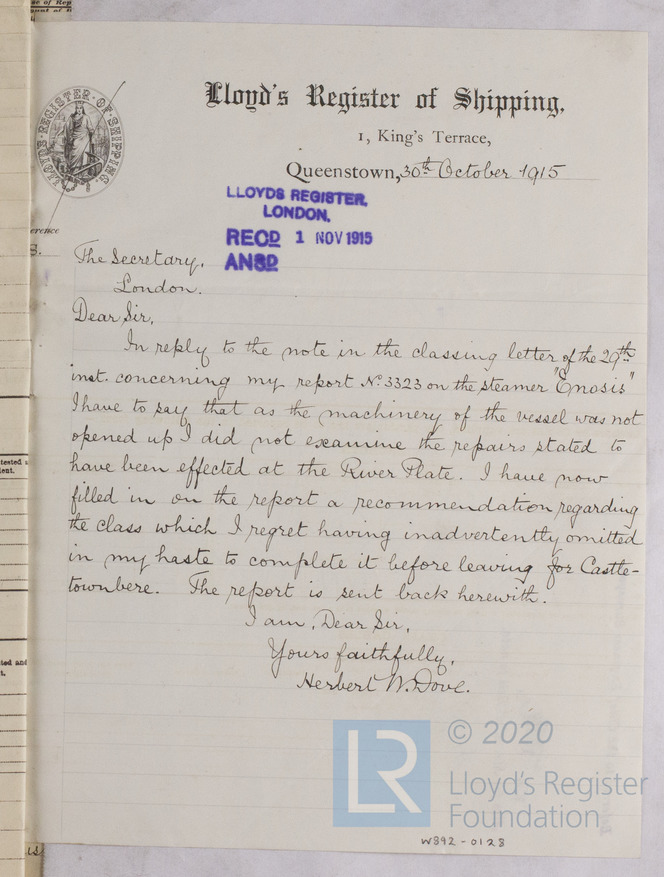 Lloyd's Register of Shipping,
LLOYD'S REGISTER OF SHIPPING
1, King's Terrace,
Queenstown, 30th October 1915
LLOYDS REGISTER,
LONDON.
REC'D 1 NOV 1915
ANS'D
The Secretary,
London.
Dear Sir,
In reply to the note in the classing letter of the 29th
inst. concerning my report No. 3323 on the steamer "Enosis"
I have to say that as the machinery of the vessel was not
opened up I did not examine the repairs stated to
have been effected at the River Plate. I have now
filled in on the report a recommendation regarding
the class which I regret having inadvertently omitted
in my haste to complete it before leaving for Castle-
townbere. The report is sent back herewith.
I am, Dear Sir,
Yours faithfully,
Herbert W. Dove.
LR
© 2020
Lloyd's Register
Foundation
W892-0128